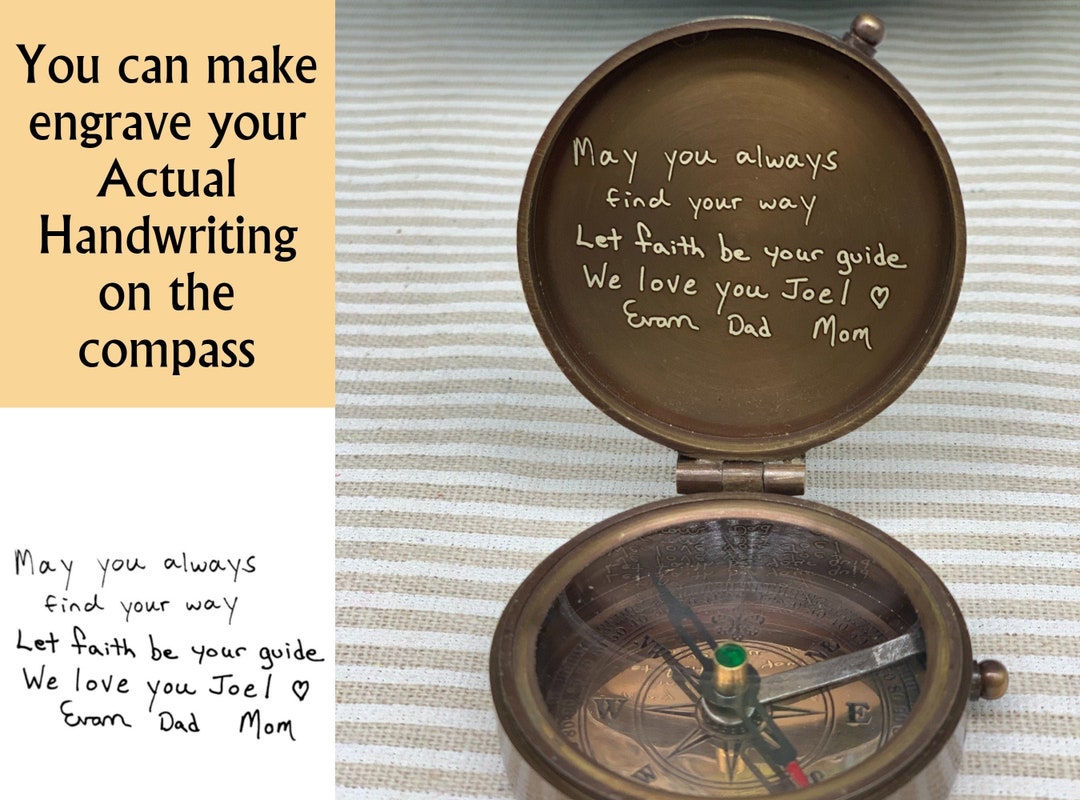 You can make
engrave your
Actual
Handwriting
on the
compass
May you always
find your way
Let faith be your guide
We love you Joel ♡
Evan Dad Mom
May you always
find your way
Let faith be your guide
We love you Joel ♡
Evan Dad Mom
W
E